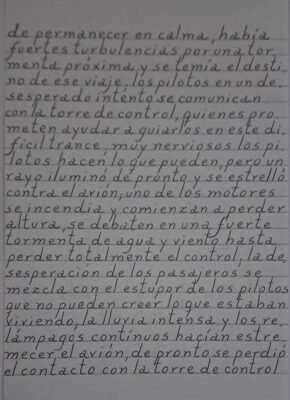 de permanecer en calma, había
fuertes turbulencias por una tor
menta próxima y se temía el desti
no de ese viaje, los pilotos en un de.
sesperado inténto se comunican
con la torre de control, quienes pro-
meten ayudar a guiarlos en este di-
fícil trance, muy nerviosos los pi-
lotos hacen lo que pueden, pero un
rayo iluminó de pronto y se estrelló
contra el avión, uno de los motores
se incendia y comienzan a perder
altura, se debaten en una fuerte
tormenta de agua y viento hasta
perder totalmente el control, la de,
sesperación de los pasajeros se
mezcla con el estupor de los pilotos
que no pueden creer lo que estaban
viviendo, la lluvia intensa y los re,
lámpagos contínuos hacían estre
mecer el avión, de pronto se perdió
el contacto con la torre de control